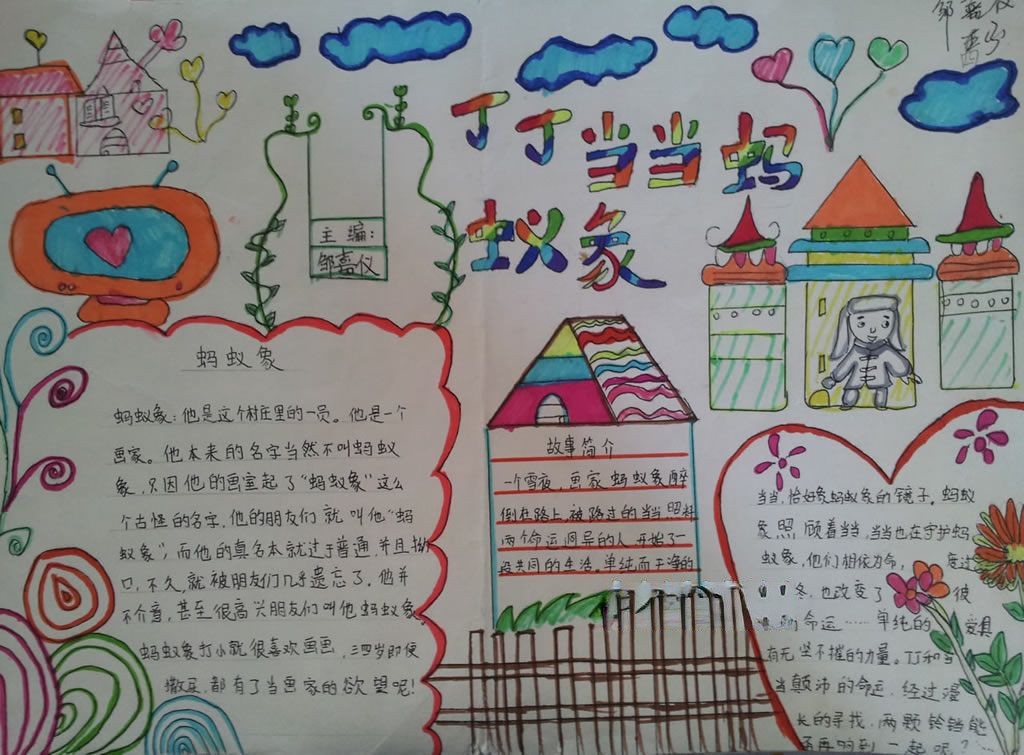 丁丁当当蚂
蚁象
主编：
邹嘉仪
蚂蚁象
蚂蚁象：他是这个村庄里的一员。他是一个
画家。他本来的名字当然不叫蚂蚁
象，只因他的画室起了“蚂蚁象”这么
个古怪的名字，他的朋友们就叫他“蚂
蚁象”，而他的真名本就过于普通，并且拗
口，不久，就被朋友们几乎遗忘了。他并
不介意，甚至很高兴朋友们叫他蚂蚁象
蚂蚁象打小就很喜欢画画，三四岁即便
撒尿，都有了当画家的欲望呢！
故事简介
一个雪夜，画家蚂蚁象醉
倒在路上，被路过的当当照料
两个命运迥异的人开始了一
段共同的生活。单纯而干净的
当当，恰好象蚂蚁象的镜子。蚂蚁
象照顾着当当，当当也在守护蚂
蚁象，他们相依为命，度过
冬，也改变了彼
命运……单纯的
有无坚不摧的力量。丁丁和当
当颠沛的命运，经过漫
长的寻找，两颗铃铛能